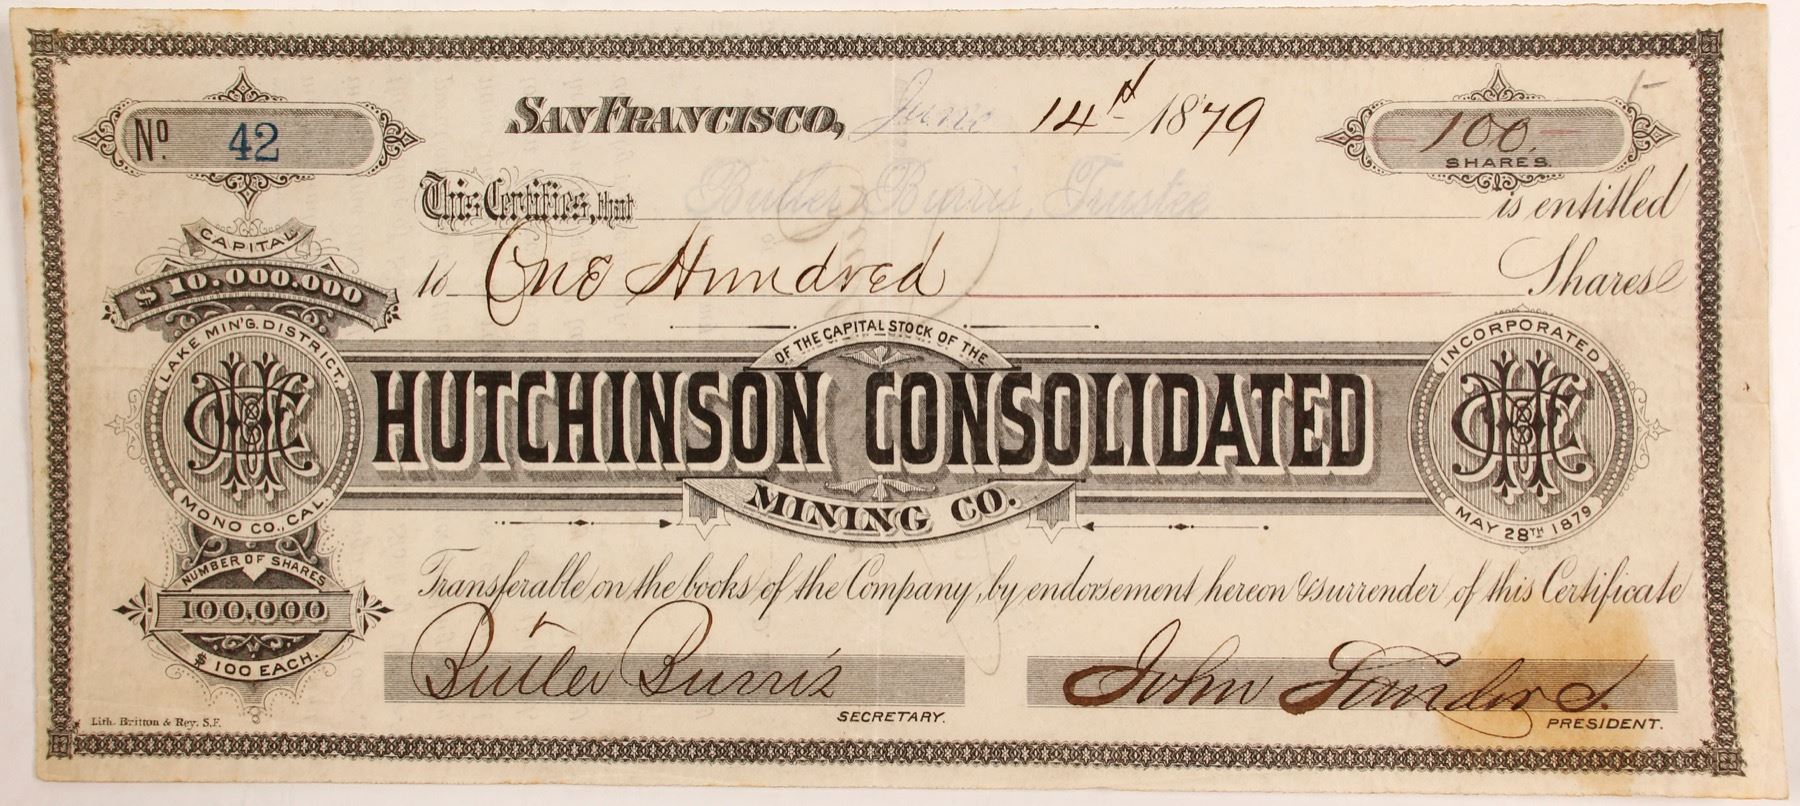 No. 42
SAN FRANCISCO, June 14th 1879
100.
SHARES.
This Certifies, that Butler Burris, Trustee is entitled
to One Hundred Shares
CAPITAL
$10.000.000
LAKE MIN'G. DISTRICT.
MONO CO., CAL.
OF THE CAPITAL STOCK OF THE
HUTCHINSON CONSOLIDATED
MINING CO.
INCORPORATED
MAY 28TH 1879
NUMBER OF SHARES
100.000
$100 EACH.
Transferable on the books of the Company, by endorsement hereon & surrender of this Certificate
Butler Burris
SECRETARY.
John
PRESIDENT.
Lith. Britton & Rey. S.F.